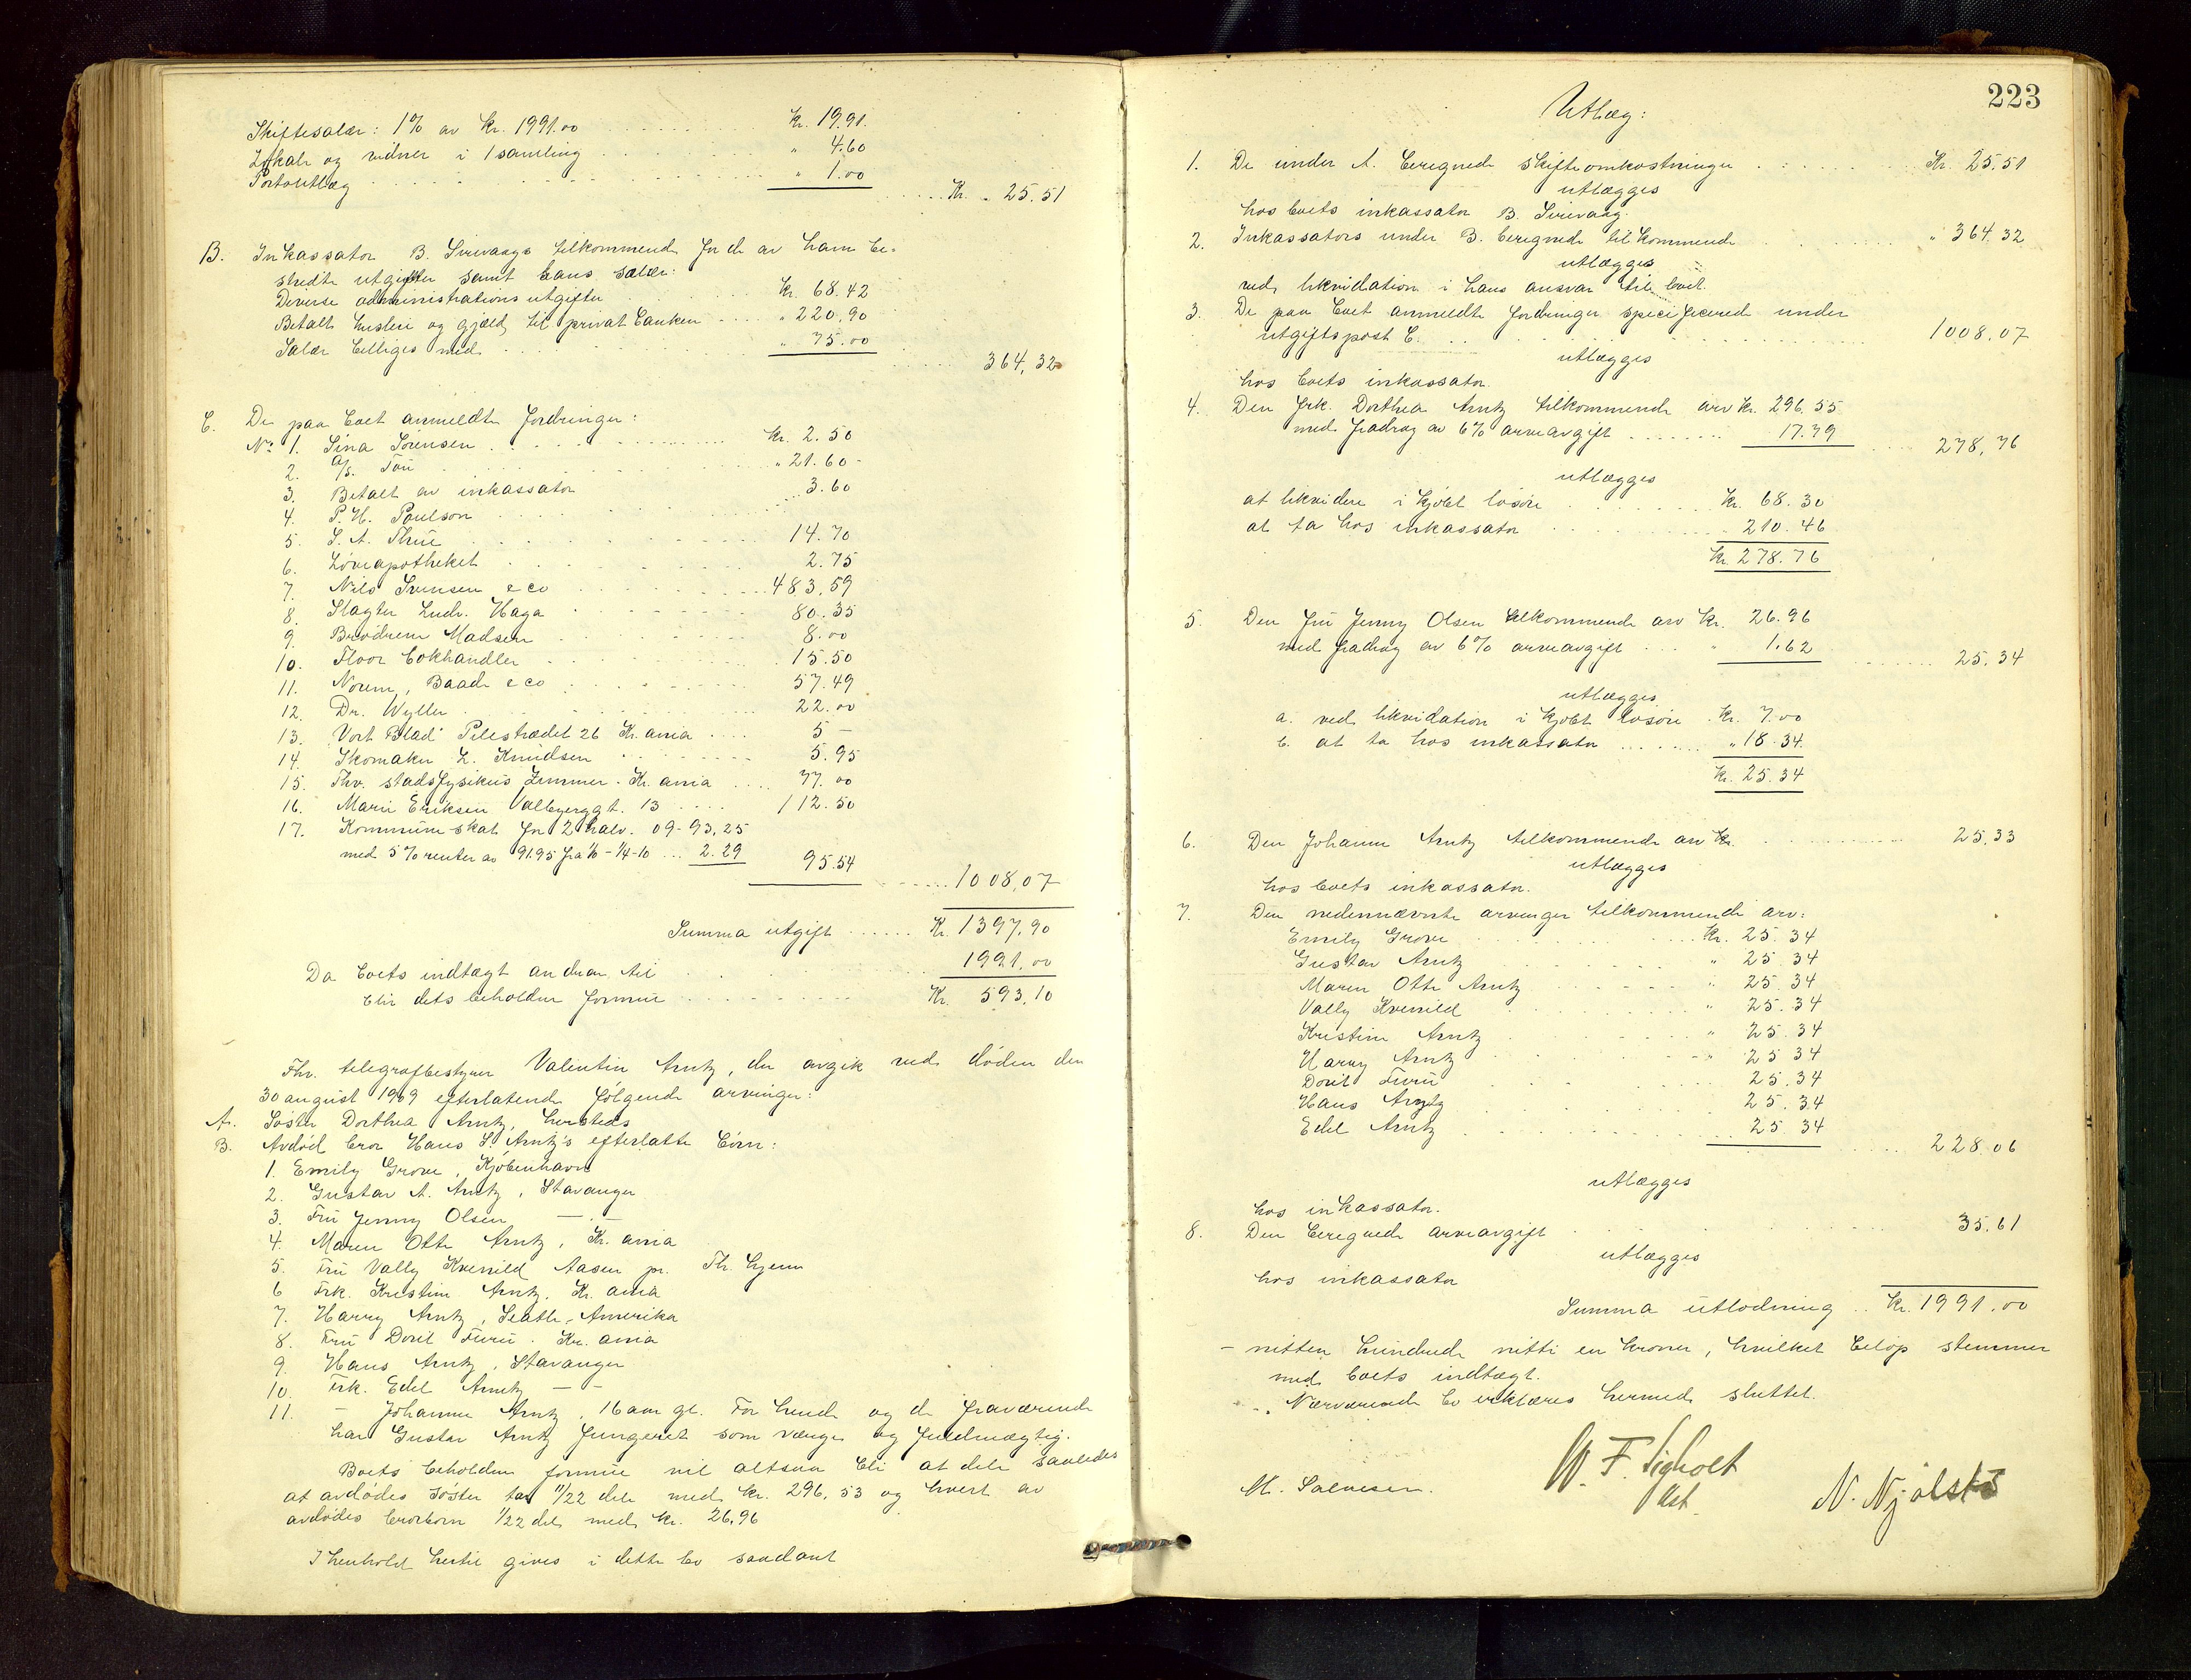 Skiftesalær: 1% av kr. 1991.00 ...... kr. 19.91.
Lokale og vidner i 1 samling ...... " 4.60
Portoutlæg ...... " 1.00
...... Kr. 25.51
B. Inkassator B. Sirevaags tilkommende for de av ham be-
stridte utgifter samt hans salær:
Diverse administrationsutgifter ...... kr. 68.42
Betalt husleie og gjæld til privatbanken ...... " 220.90
Salær billiges med ...... " 75.00
...... 364,32
C. De paa boet anmeldte fordringer:
No 1. Sina Sørensen ...... kr. 2.50
2. A/S. Tou ...... " 21.60-
3. Betalt av inkassator ...... 3.60
4. P. H. Poulson ......
5. S. A. Thue ...... 14.70
6. Løveapotheket ...... 2.75
7. Nils Svensen & co ...... 483,59
8. Slagter Ludv. Haga ...... 80.35
9 Brødrene Madsen ...... 8.00
10. Floor bokhandler ...... 15.50
11. Norem, Baade & co ...... 57.49
12. Dr. Wyller ...... 22.00
13. "Vort Blad" Pilestrædet 26 Kr.ania .... 5 –
14. Skomaker L. Knudsen ...... 5.95
15. Fhv. stadsfysikus Zimmer. Kr.ania .... 77.00
16. Marie Eriksen Valbjerggt. 13 .... 112.50
17. Kommuneskat for 2 halv. 09 - 93,25
med 5% renter av 91.95 fra 1/10 - 1/4-10 ... 2.29
95.54
...... 1008,07
Summa utgift ...... Kr. 1397,90
Da boets indtægt andrar til ...... 1991.00
blir dets beholdne formue ...... Kr. 593,10
Fhv. telegrafbestyrer Valentin Arntz, der avgik ved døden den
30 august 1909 efterlatende følgende arvinger:
A. Søster Dorthea Arntz, hersteds
B. Avdød bror Hans S. Arntz's efterlatte børn:
1. Emily Grove, Kjøbenhavn
2. Gustav A. Arntz, Stavanger
3. Fru Jenny Olsen — " —
4. Maren Otte Arntz, Kr.ania
5. Fru Vally Kvenild Aasen pr. Th.hjem
6 Frk. Kristine Arntz. Kr.ania
7. Harry Arntz, Seatle, Amerika
8. Fru Dorit Furu. Kr.ania
9. Hans Arntz, Stavanger
10. Frk. Edel Arntz — " —
11. – Johanne Arntz, 16 aar gl. For hende og de fraværende
har Gustav Arntz fungeret som værge og fuldmægtig.
Boets beholdne formue vil altsaa bli at dele saaledes
at avdødes søster tar 11/22 dele med kr. 296,53 og hvert av
avdødes brorbørn 1/22 del med kr. 26,96
I henhold hertil gives i dette bo saadant
223
Utlæg:
1. De under A. beregnede skifteomkostninger ...... Kr. 25,51
utlægges
hos boets inkassator B. Sirevaag.
2. Inkassators under B. beregnede tilkommende ...... " 364.32
utlægges
ved likvidation i hans ansvar til boet.
3. De paa boet anmeldte fordringer specificerede under
utgiftspost C. ...... 1008,07
utlægges
hos boets inkassator.
4. Den frk. Dorthea Arntz tilkommende arv kr. 296.55
med fradrag av 6% arveavgift ...... 17.79
...... 278,76
utlægges
at likvidere i kjøbt løsøre ...... kr. 68.30
at ta hos inkassator ...... 210.46
kr. 278.76
5. Den fru Jenny Olsen tilkommende arv kr. 26.96
med fradrag av 6% arveavgift ... " 1.62
...... 25.34
utlægges
a. ved likvidation i kjøbt løsøre . kr. 7.00
b. at ta hos inkassator ...... " 18.34.
kr. 25.34
6. Den Johanne Arntz tilkommende arv kr. ...... 25.33
utlægges
hos boets inkassator.
7. Den nedennævnte arvinger tilkommende arv:
Emily Grove ...... kr. 25.34
Gustav Arntz ...... " 25.34
Maren Otte Arntz ...... " 25.34
Vally Kvenild ...... " 25.34
Kristine Arntz ...... " 25.34
Harry Arntz ...... " 25 34
Dorit Furu ...... 25.34
Hans Arntz ...... 25.34
Edel Arntz ...... 25 34
...... 228.06
utlægges
hos inkassator.
8. Den beregnede arveavgift ...... 35.61
utlægges
hos inkassator
Summa utlodning .. Kr. 1991.00
– nitten hundrede nitti en kroner, hvilket beløp stemmer
med boets indtægt.
Nærværende bo erklæres hermed sluttet.
M. Salvesen. W. F. Sigholt N. Njølstd